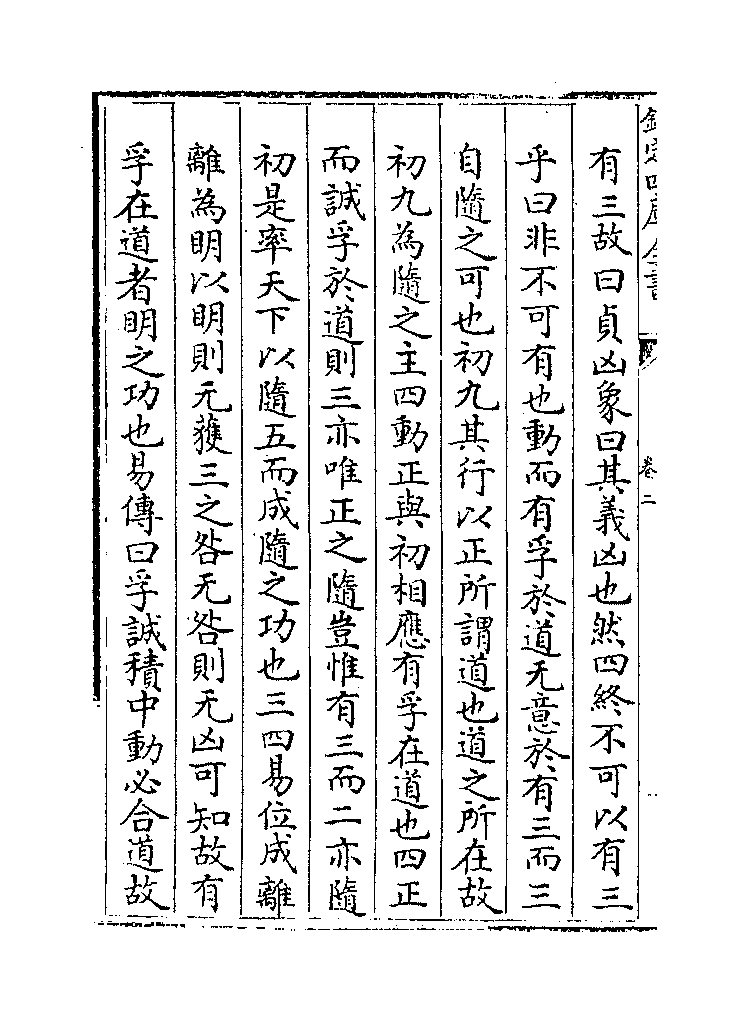 欽定四庫全書
卷二
有三故曰貞凶象曰其義凶也然四終不可以有三
乎曰非不可有也動而有孚於道无意於有三而三
自隨之可也初九其行以正所謂道也道之所在故
初九為隨之主四動正與初相應有孚在道也四正
而誠孚於道則三亦唯正之隨豈惟有三而二亦隨
初是率天下以隨五而成隨之功也三四易位成離
離為明以明則无獲三之咎无咎則无凶可知故有
孚在道者明之功也易傳曰孚誠積中動必合道故